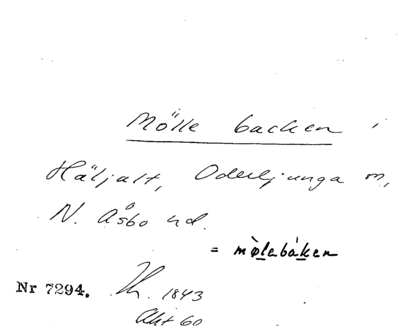 Mölle backen i
Häljalt, Oderljunga sn,
N. Åsbo hd.
= mø̀lebáken
Nr 7294. Ih. 1843
Akt 60